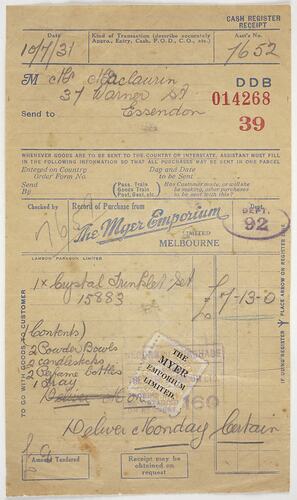 CASH REGISTER
RECEIPT
Date
Kind of Transaction (describe accurately
Appro., Entry, Cash, P.O.D., C.O., etc.)
Asst's No.
10/7/31
7652
M Mr Maclaurin
DDB
37 Warner St
014268
Send to
Essendon
39
WHENEVER GOODS ARE TO BE SENT TO THE COUNTRY OR INTERSTATE, ASSISTANT MUST FILL
IN THE FOLLOWING INFORMATION SO THAT ALL PURCHASES MAY BE SENT IN ONE PARCEL
Entered on Country
Order Form No.
Day and Date
to be Sent
Send
By
Pass. Train
Goods Train
Post, Boat, etc.
Has Customer made, or will she
be making, other purchases
to be sent with this?
Checked by
Record of Purchase from
Dept.
The Myer Emporium
LIMITED
MELBOURNE
DEPT.
92
LAMSON PARAGON LIMITED
1x Crystal Trinklet Set
15883
£7-13-0
Contents)
2 Powder Bowls
2 candlesticks
2 Perfume bottles
1 Tray
THE
MYER
EMPORIUM
LIMITED.
169
Deliver
Deliver Monday Certain
TO GO WITH GOODS TO CUSTOMER
IF USING REGISTER PLACE ARROW ON REGISTER
Amount Tendered
Receipt may be
obtained on
request